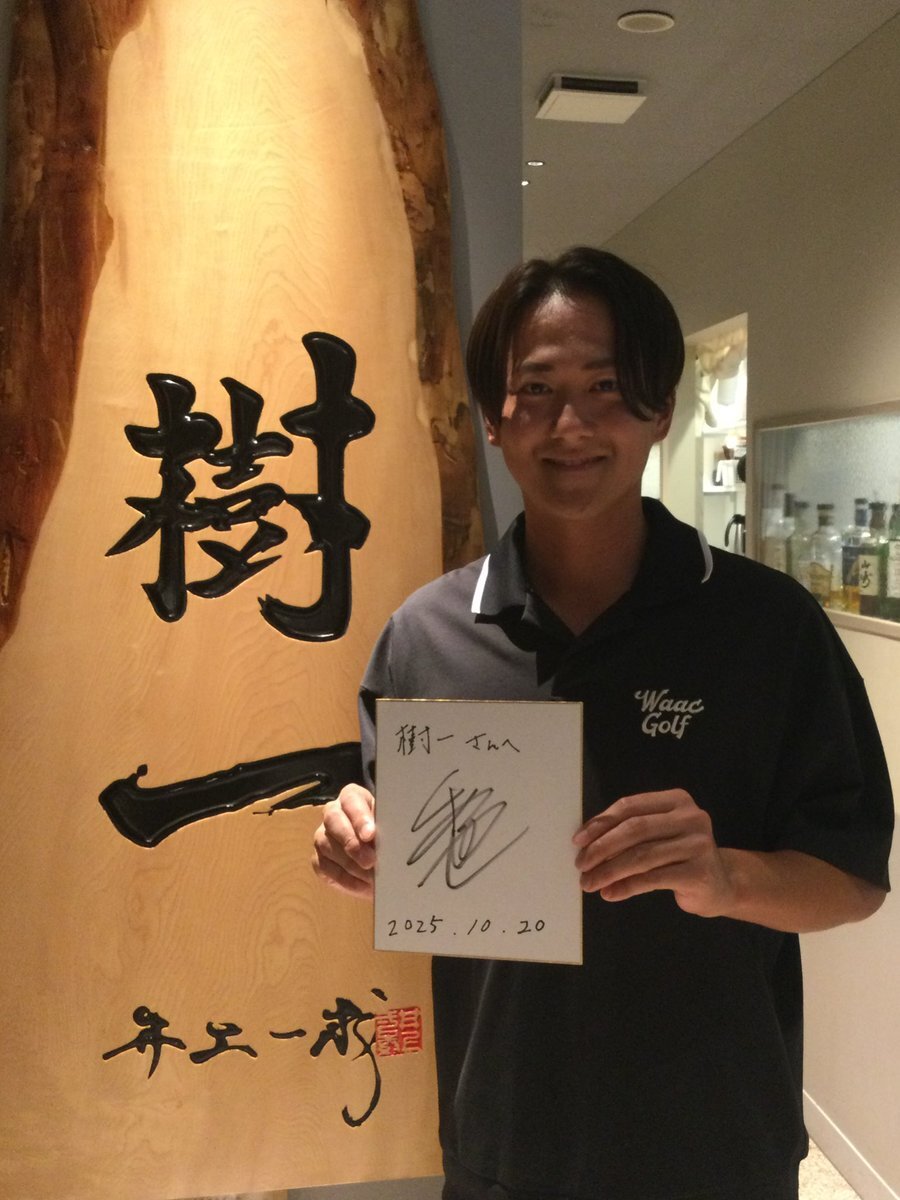 樹
一
井上一樹
樹一さんへ
2025.10.20
Waac
Golf
山崎